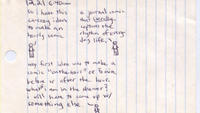 12.21 6:40am
so i have this
curvey idea
to make an
hourly comic
a journal comic
that literally
captures the
rhythm of every
day life.
my first idea was to make a
comic "on the hour" or 5 min
before or after the hour.
what i am in the shower?
i will have to come up w/
something else